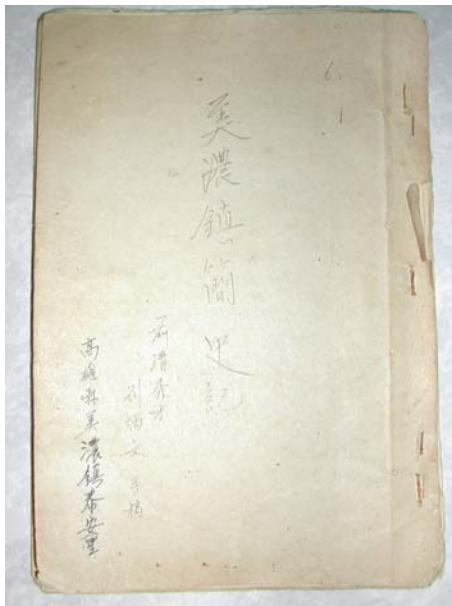 美濃鎮簡史記
前清秀才
劉炳文 手稿
高雄縣美濃鎮泰安里